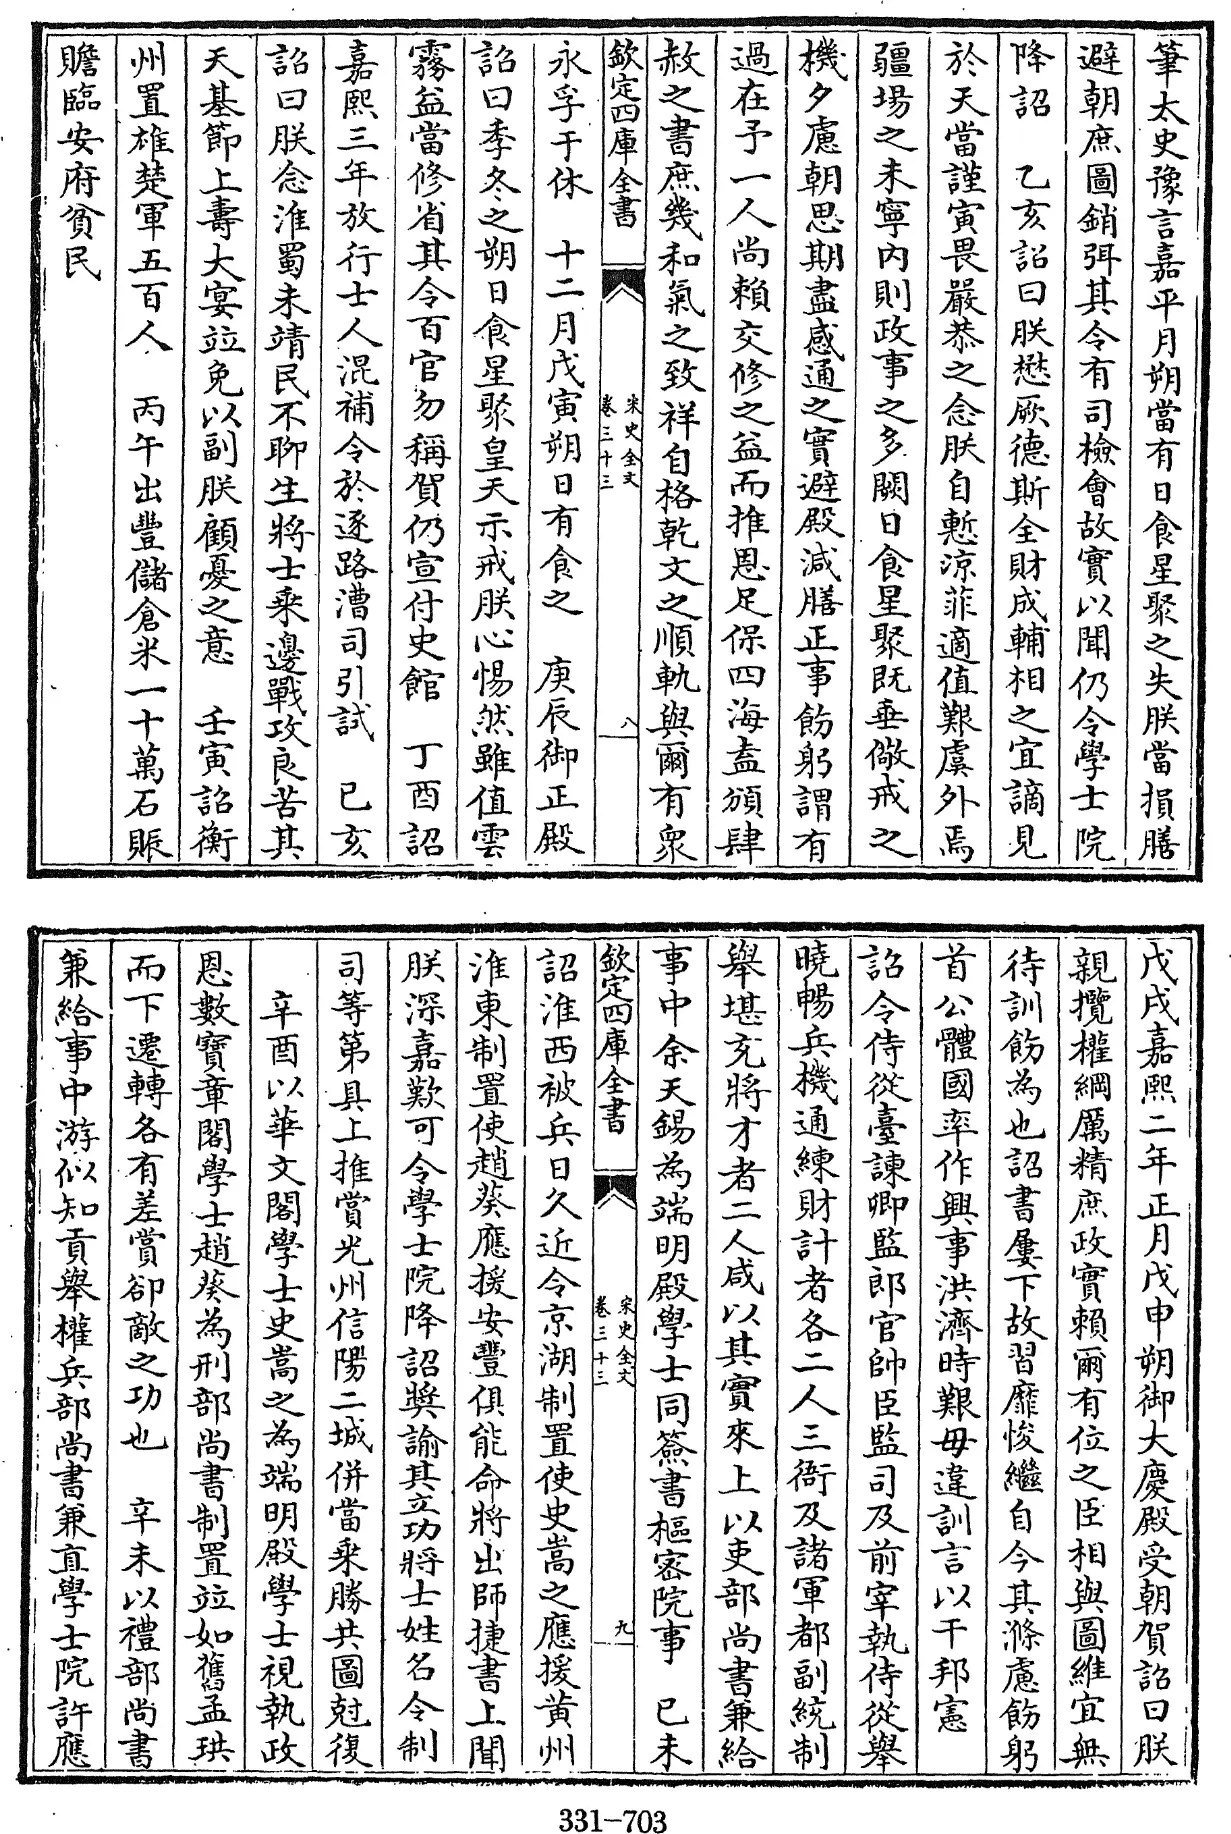 筆太史豫言嘉平月朔當有日食星聚之失朕當損膳
避朝庶圖銷弭其令有司檢會故實以聞仍令學士院
降詔　乙亥詔曰朕懋厥德斯全財成輔相之宜謫見
於天當謹寅畏嚴恭之念朕自慙涼菲適值艱虞外焉
疆場之未寧内則政事之多闕日食星聚既垂儆戒之
機夕慮朝思期盡感通之實避殿減膳正事飭躬謂有
過在予一人尚賴交修之益而推恩足保四海盍頒肆
赦之書庶幾和氣之致祥自格乾文之順軌與爾有衆
欽定四庫全書
宋史全文
卷三十三
八
永孚于休　十二月戊寅朔日有食之　庚辰御正殿
詔曰季冬之朔日食星聚皇天示戒朕心惕然雖值雲
霧益當修省其令百官勿稱賀仍宣付史館　丁酉詔
嘉熙三年放行士人混補令於逐路漕司引試　已亥
詔曰朕念淮蜀未靖民不聊生將士乘邊戰攻良苦其
天基節上壽大宴竝免以副朕顧憂之意　壬寅詔衡
州置雄楚軍五百人　丙午出豐儲倉米一十萬石賑
贍臨安府貧民
戊戌嘉熙二年正月戊申朔御大慶殿受朝賀詔曰朕
親攬權綱厲精庶政實賴爾有位之臣相與圖維宜無
待訓飭為也詔書屢下故習靡悛繼自今其滌慮飭躬
首公體國率作興事洪濟時艱毋違訓言以干邦憲
詔令侍從臺諫卿監郎官帥臣監司及前宰執侍從舉
曉暢兵機通練財計者各二人三衙及諸軍都副統制
舉堪充將才者二人咸以其實來上以吏部尚書兼給
事中余天錫為端明殿學士同簽書樞密院事　已未
欽定四庫全書
宋史全文
卷三十三
九
詔淮西被兵日久近令京湖制置使史嵩之應援黄州
淮東制置使趙葵應援安豐俱能命將出師捷書上聞
朕深嘉歎可令學士院降詔奬諭其立功將士姓名令制
司等第具上推賞光州信陽二城併當乘勝共圖尅復
辛酉以華文閣學士史嵩之為端明殿學士視執政
恩數寶章閣學士趙葵為刑部尚書制置竝如舊孟珙
而下遷轉各有差賞卻敵之功也　辛未以禮部尚書
兼給事中游似知貢舉權兵部尚書兼直學士院許應
331-703